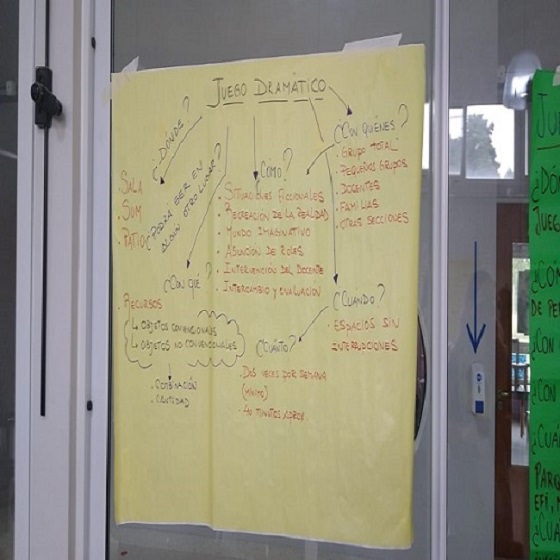 JUEGO DRAMÁTICO
¿DÓNDE?
SALA
SUM
PATIO
¿PODRÁ SER EN
ALGÚN OTRO LUGAR?
¿CÓMO?
. SITUACIONES FICCIONALES
. RECREACIÓN DE LA REALIDAD
. MUNDO IMAGINATIVO
. ASUNCIÓN DE ROLES
. INTERVENCIÓN DEL DOCENTE
. INTERCAMBIO Y EVALUACIÓN
¿CON QUIÉNES?
. GRUPO TOTAL
. PEQUEÑOS GRUPOS
. DOCENTES
. FAMILIAS
. OTRAS SECCIONES
¿CON QUÉ?
. RECURSOS
OBJETOS CONVENCIONALES
OBJETOS NO CONVENCIONALES
. COMBINACIÓN
. CANTIDAD
¿CUÁNDO?
. ESPACIOS SIN
INTERRUPCIONES
¿CUÁNTO?
. DOS VECES POR SEMANA
(MÍNIMO)
. 40 MINUTOS
¿CON
¿CON